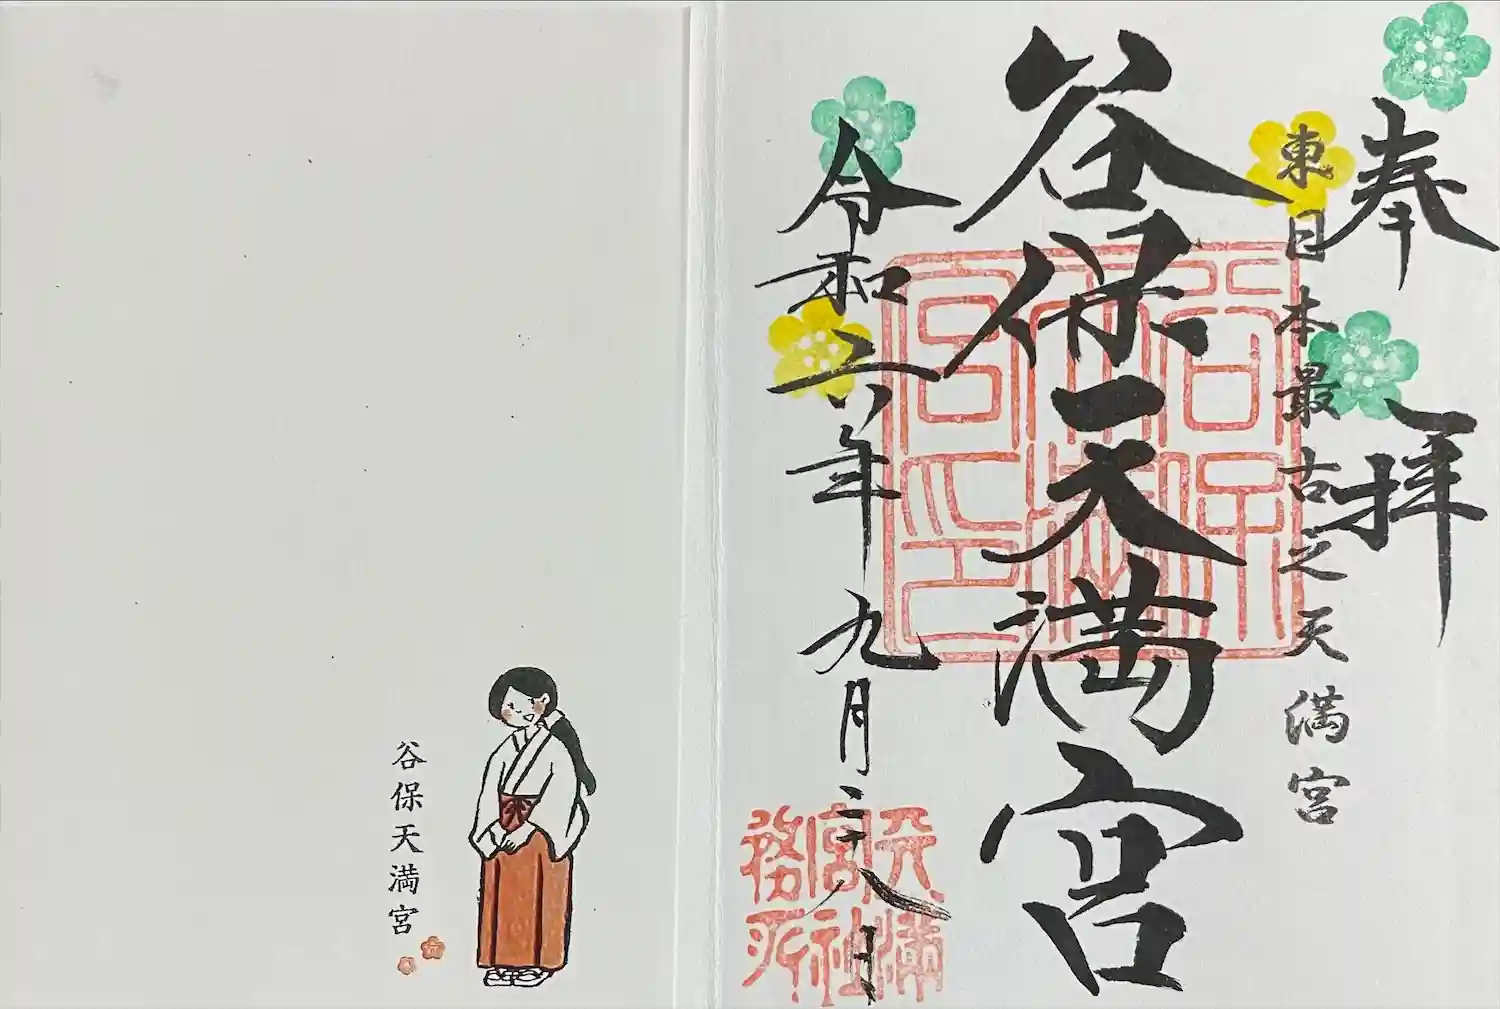 奉拝
東日本最古之天満宮
谷保天満宮
令和六年九月二十八日
谷保天満宮印
天満宮祖務所
谷保天満宮